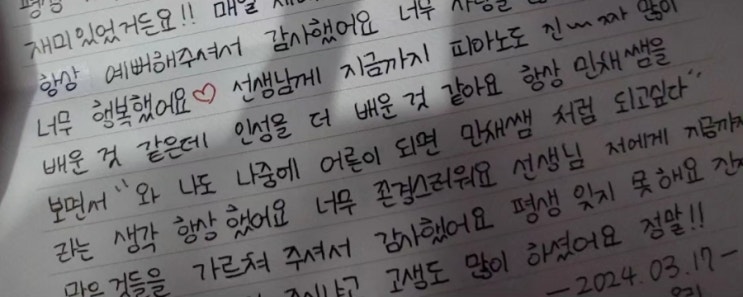 재미있었거든요!! 매일
항상 예뻐해주셔서 감사했어요 너무
너무 행복했어요♡ 선생님께 지금까지 피아노도 진~~짜 많이
배운 것 같은데 인성을 더 배운 것 같아요 항상 민채쌤을
보면서 "와 나도 나중에 어른이 되면 민채쌤 처럼 되고싶다"
라는 생각 항상 했어요 너무 존경스러워요 선생님 저에게 지금까지
많은것들을 가르쳐 주셔서 감사했어요 평생 잊지 못해요
고생도 많이 하셨어요 정말!!
-2024.03.17-